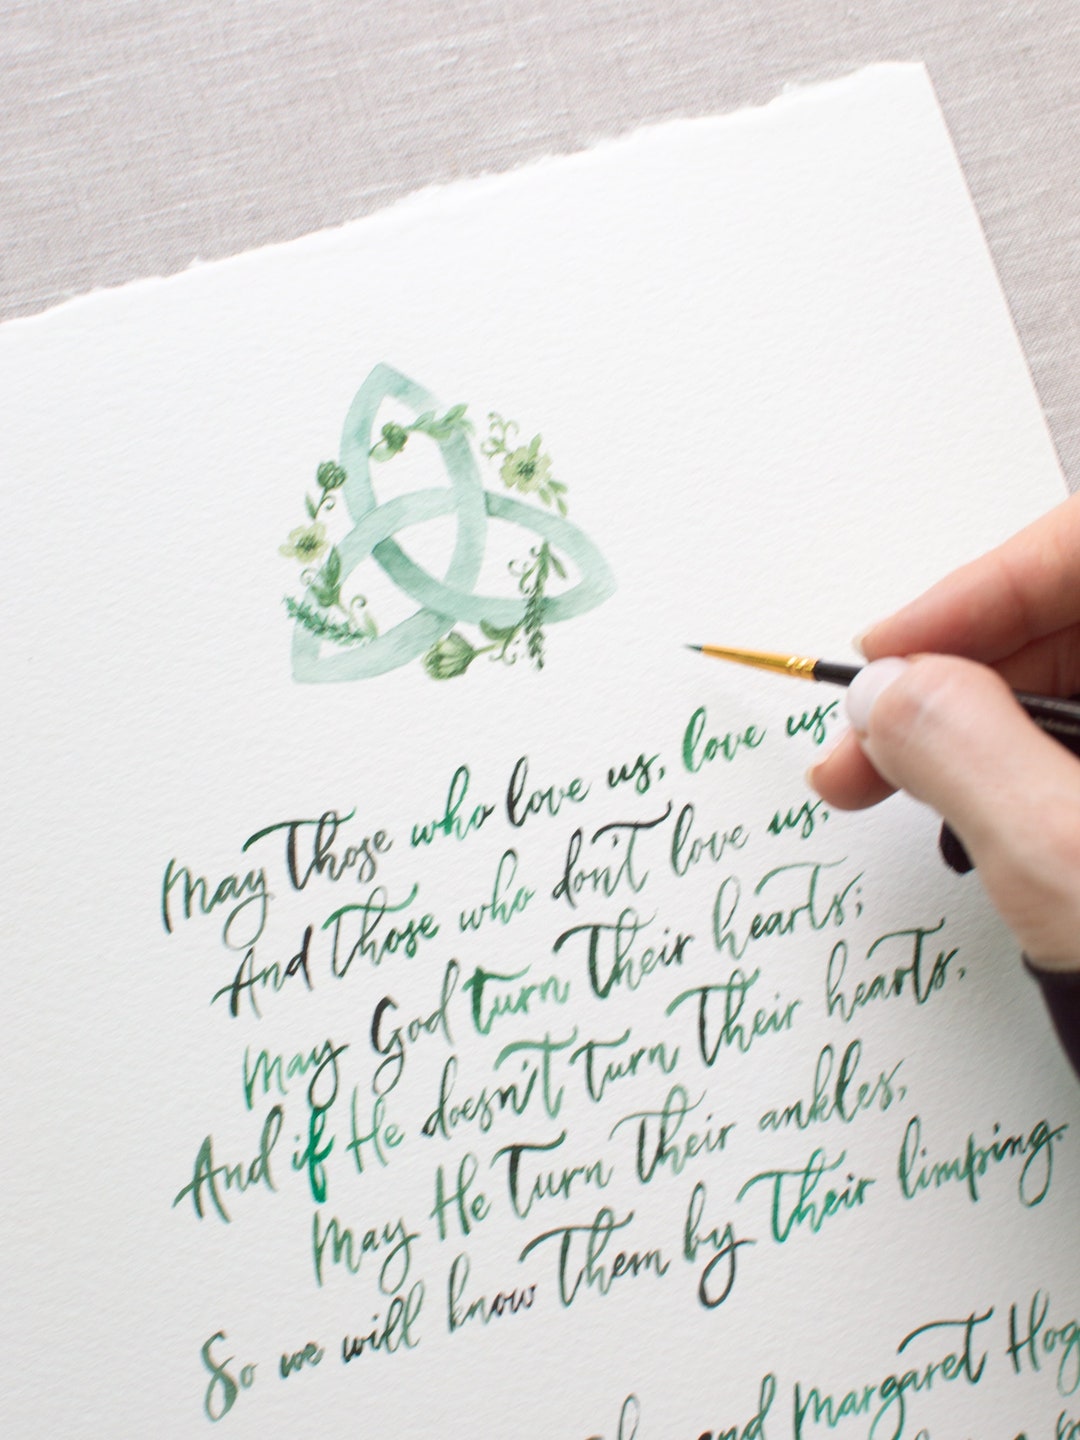 May Those who love us, love us.
And Those who don't love us,
May God turn Their hearts;
And if He doesn't turn Their hearts,
May He Turn Their ankles,
So we will know Them by Their limping.
and Margaret